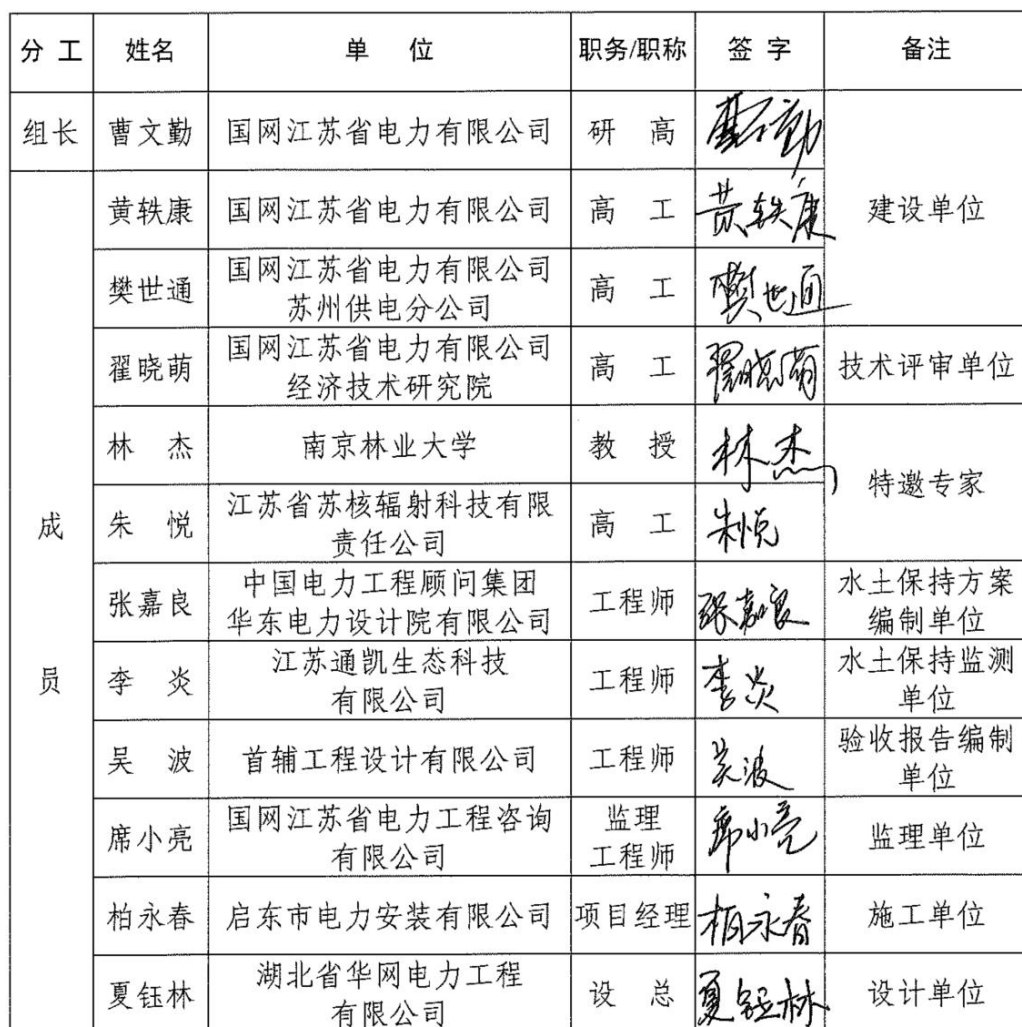 分 工 姓名 单 位 职务/职称 签 字 备注
组长 曹文勤 国网江苏省电力有限公司 研 高 曹文勤
建设单位
黄轶康 国网江苏省电力有限公司 高 工 黄轶康
樊世通 国网江苏省电力有限公司
苏州供电分公司 高 工 樊世通
翟晓萌 国网江苏省电力有限公司
经济技术研究院 高 工 翟晓萌 技术评审单位
成
员
林 杰 南京林业大学 教 授 林杰
特邀专家
朱 悦 江苏省苏核辐射科技有限
责任公司 高 工 朱悦
张嘉良 中国电力工程顾问集团
华东电力设计院有限公司 工程师 张嘉良 水土保持方案
编制单位
李 炎 江苏通凯生态科技
有限公司 工程师 李炎 水土保持监测
单位
吴 波 首辅工程设计有限公司 工程师 吴波 验收报告编制
单位
席小亮 国网江苏省电力工程咨询
有限公司 监理
工程师 席小亮 监理单位
柏永春 启东市电力安装有限公司 项目经理 柏永春 施工单位
夏钰林 湖北省华网电力工程
有限公司 设 总 夏钰林 设计单位